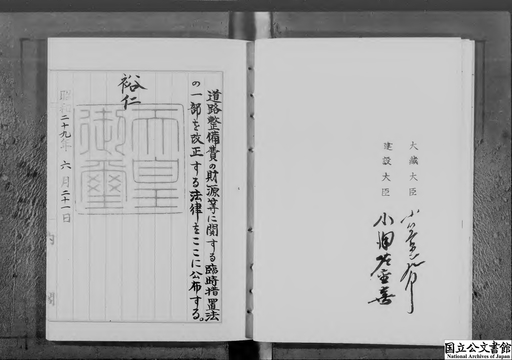 道路整備費の財源等に関する臨時措置法
の一部を改正する法律をここに公布する。
裕仁
御璽
昭和二十九年六月二十一日
大蔵大臣
建設大臣
国立公文書館
National Archives of Japan